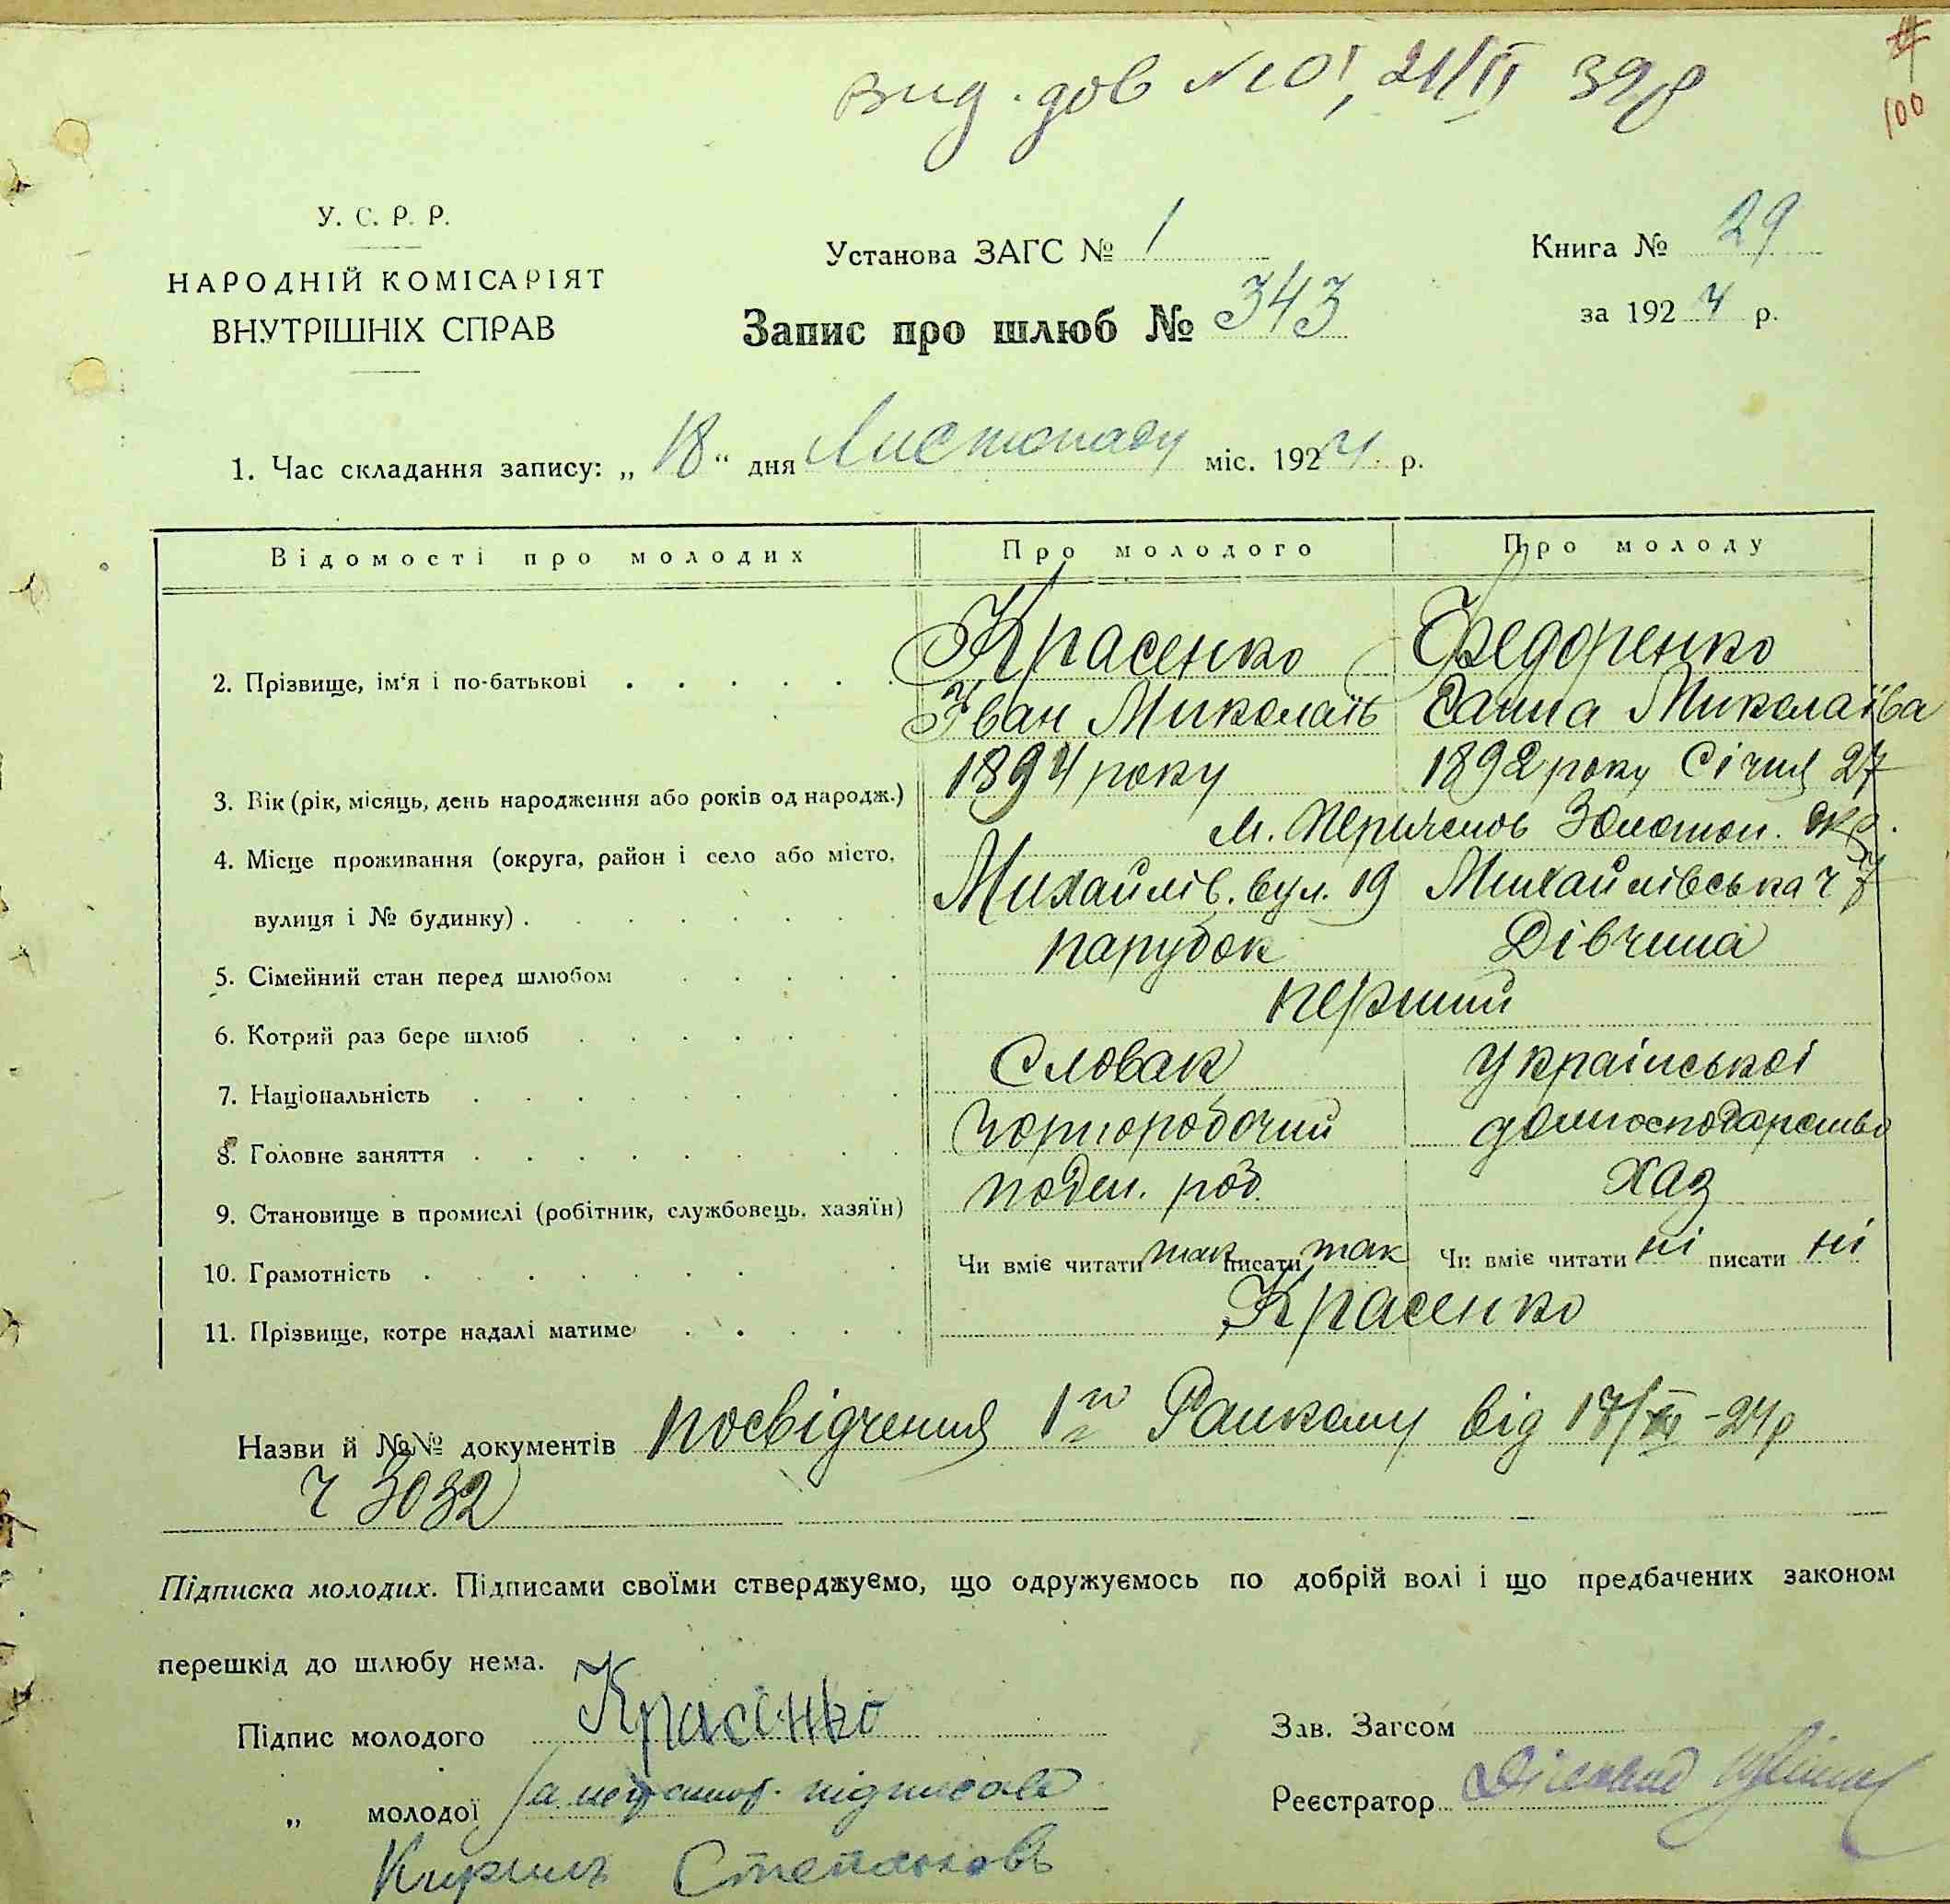 Вид. дов № 101, 21/VI 39 р
100
У. С. Р. Р.
НАРОДНІЙ КОМІСАРІЯТ
ВНУТРІШНІХ СПРАВ
Установа ЗАГС № 1
Книга № 29
Запис про шлюб № 343
за 1924 р.
1. Час складання запису: „18“ дня Листопаду міс. 1924 р.
Відомості про молодих Про молодого Про молоду
2. Прізвище, ім‘я і по-батькові Красенко Федоренко
Іван Миколаїв Ганна Миколаїва
3. Вік (рік, місяць, день народження або років од народж.) 1894 року 1892 року Січня 27
м. Золотон. окр.
4. Місце проживання (округа, район і село або місто,
вулиця і № будинку) Михайлів. вул. 19 Михайлівська ч 7
5. Сімейний стан перед шлюбом парубок Дівчина
6. Котрий раз бере шлюб перший
7. Національність Словак Української
8. Головне заняття Чорноробочий домгосподарство
9. Становище в промислі (робітник, службовець, хазяїн) поден. роб. хаз
10. Грамотність Чи вміє читати так писати так Чи вміє читати ні писати ні
11. Прізвище, котре надалі матиме Красенко
Назви й №№ документів посвідчення 1го Ранкому від 17/XI-24 р
ч 3032
Підписка молодих. Підписами своїми стверджуємо, що одружуємось по добрій волі і що предбачених законом
перешкід до шлюбу нема.
Підпис молодого Красенко
Зав. Загсом
„ молодої За неграмот. підписав
Реєстратор
Кирилъ Степановъ